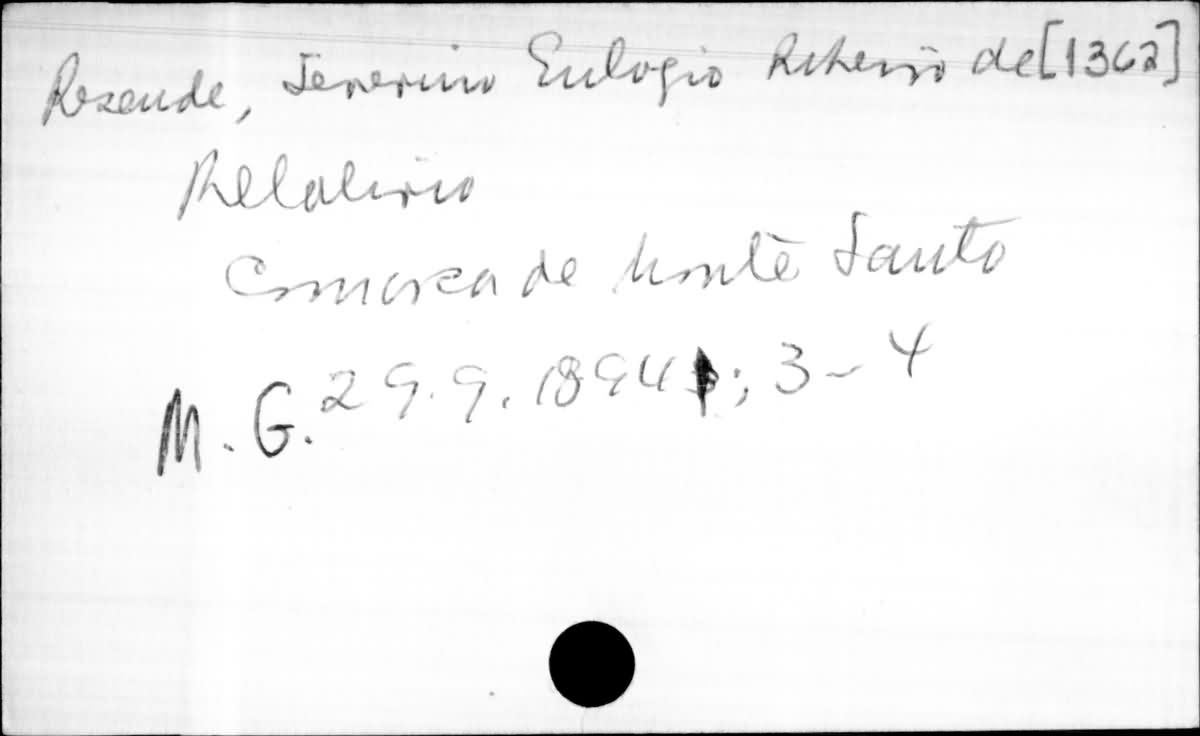 Resende, Severino Eulogio Ribeiro de [1362]
Relatorio
Comarca de Monte Santo
M. G. 29.9.1894; 3-4